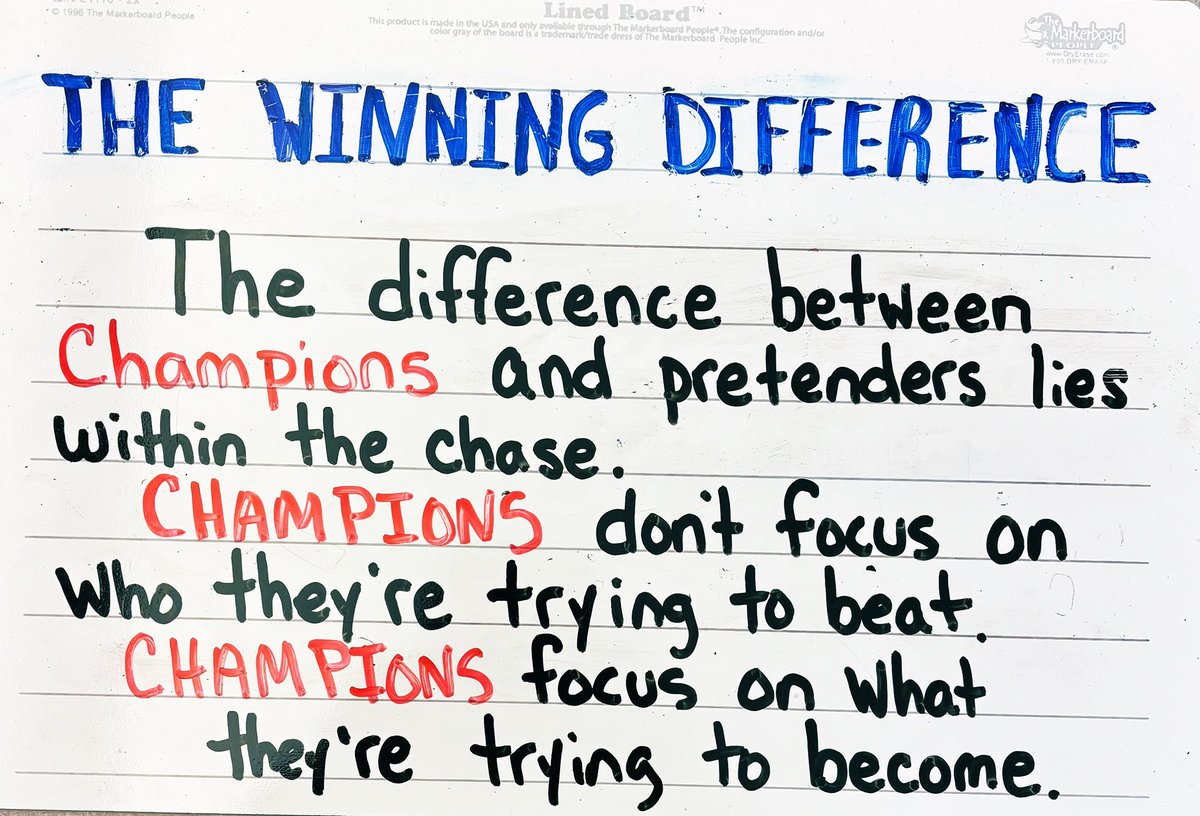 © 1996 The Markerboard People
Lined Board™
This product is made in the USA and only available through The Markerboard People®. The configuration and/or
color gray of the board is a trademark/trade dress of The Markerboard People Inc.
The
Markerboard
PEOPLE
www.DryErase.com
THE WINNING DIFFERENCE
The difference between
Champions and pretenders lies
within the chase.
CHAMPIONS don't focus on
who they're trying to beat.
CHAMPIONS focus on what
they're trying to become.